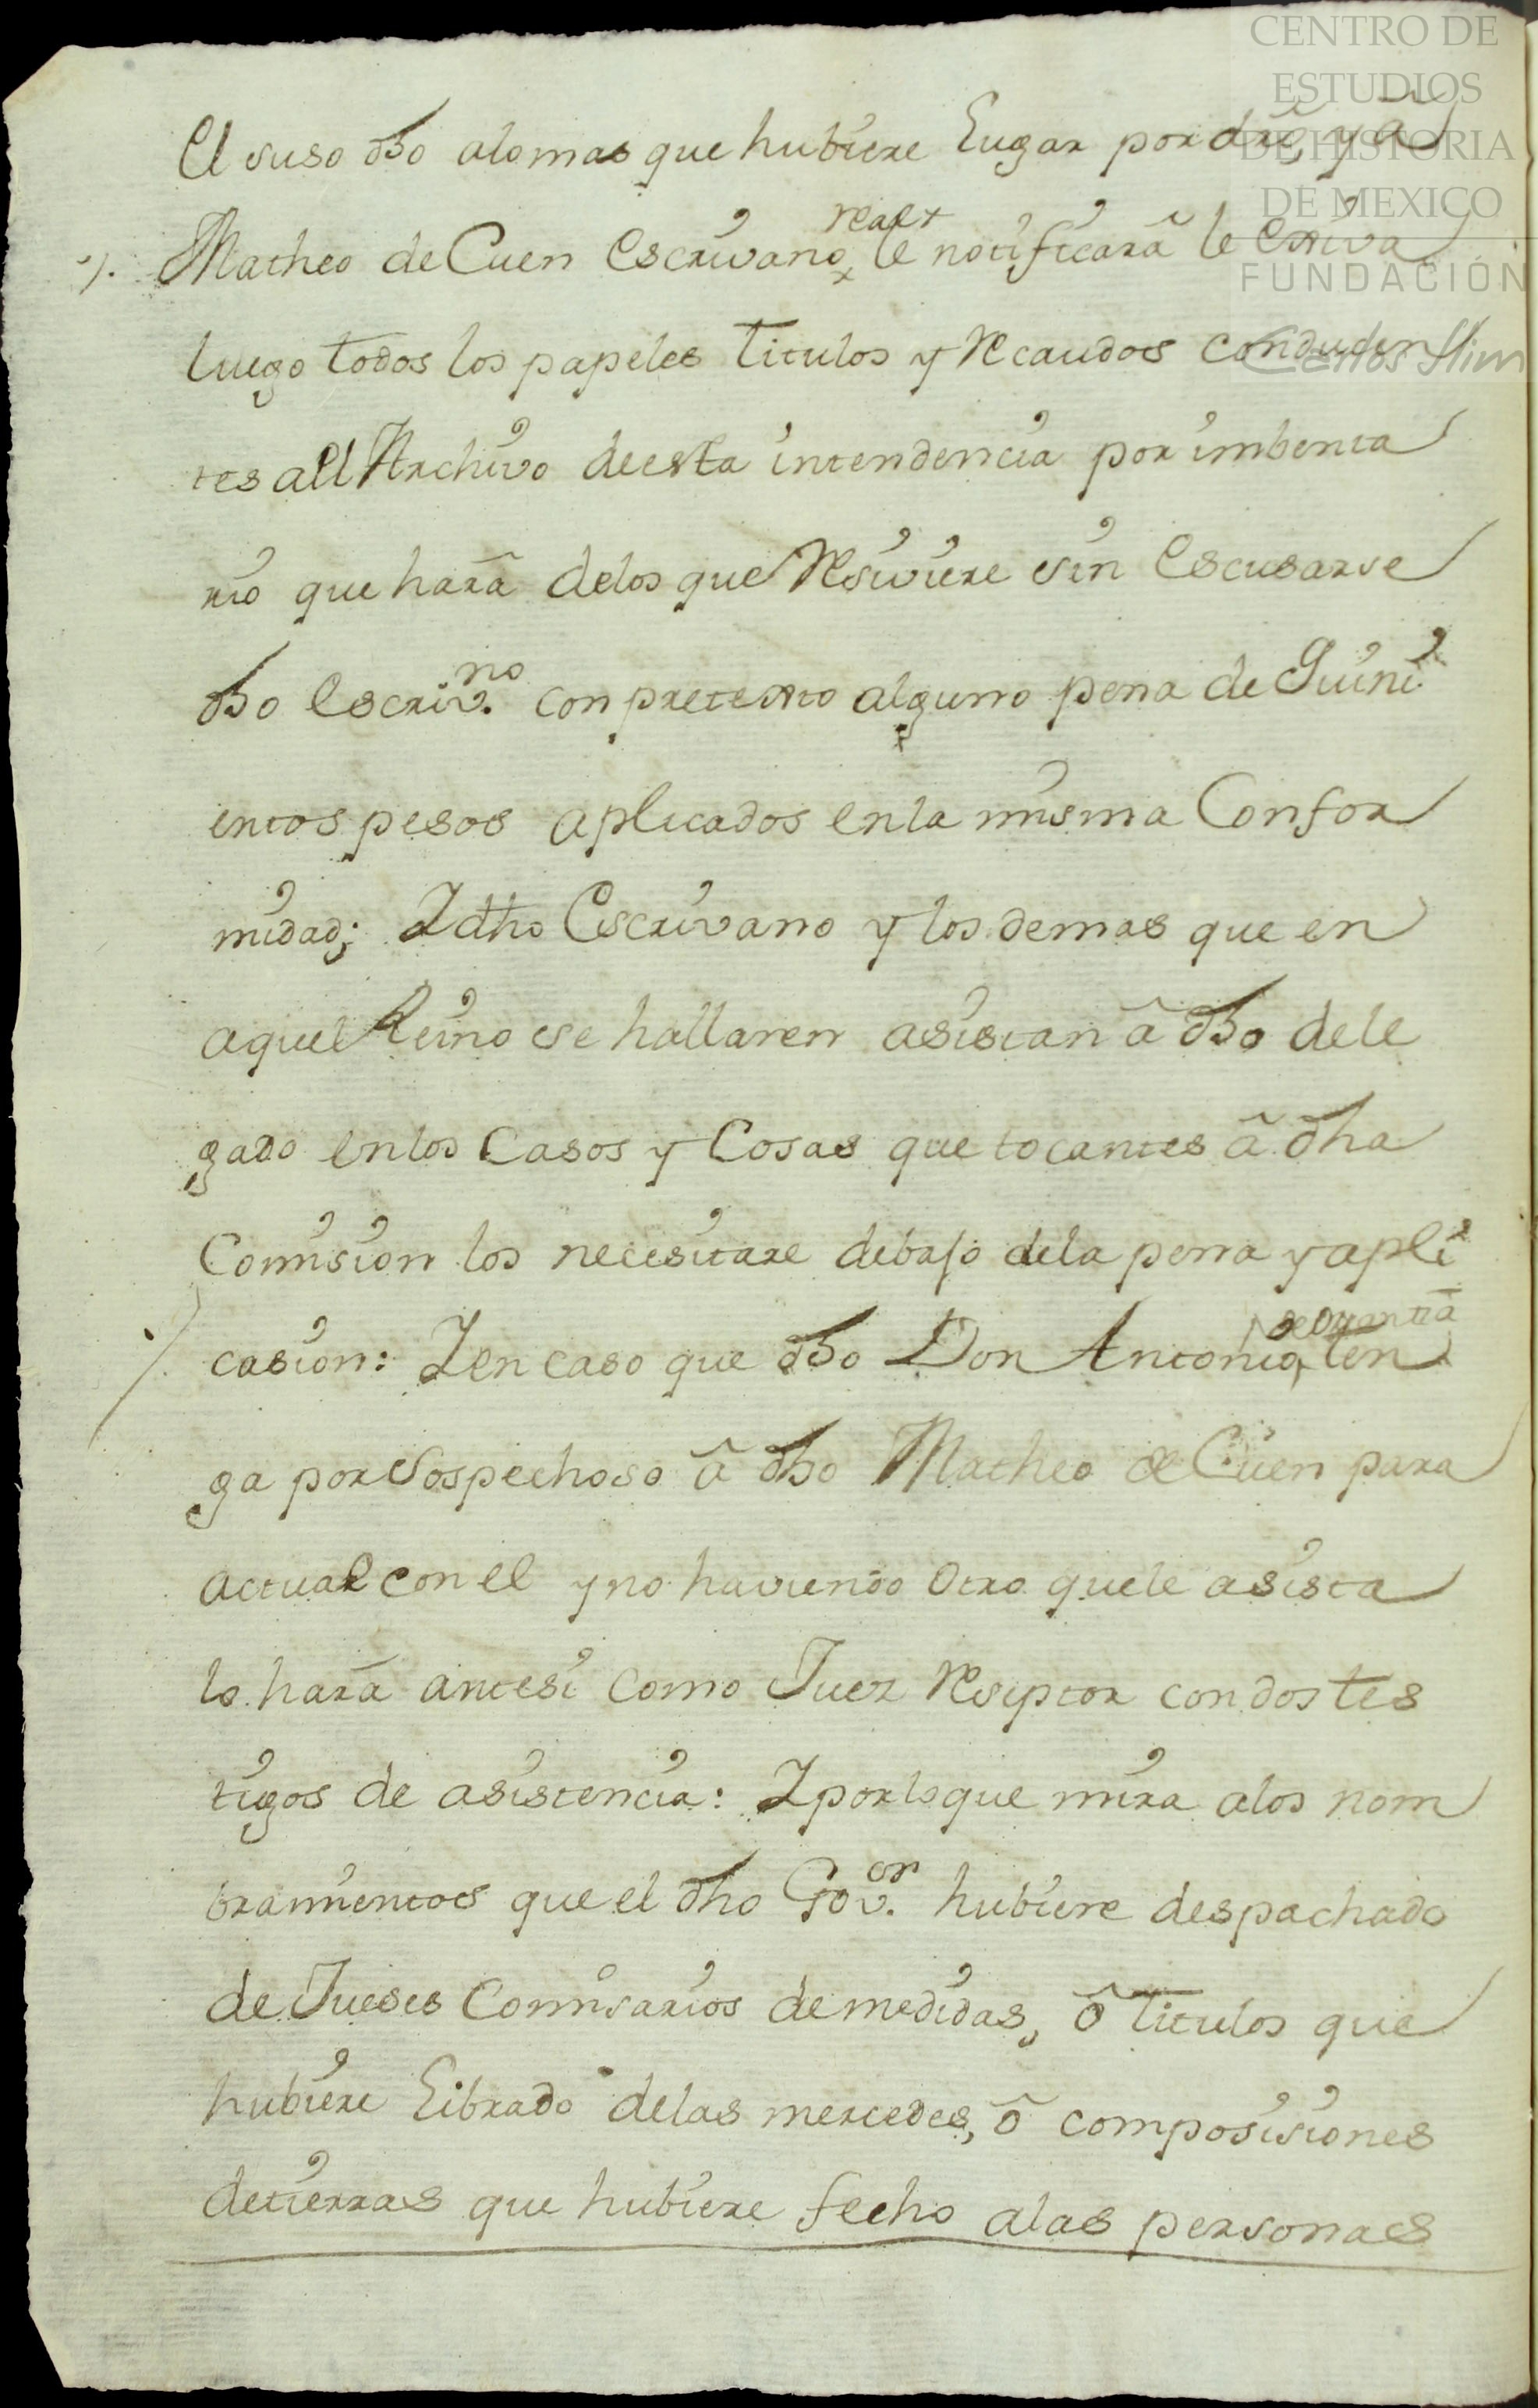 CENTRO DE
ESTUDIOS
DE HISTORIA
DE MEXICO
FUNDACIÓN
Carlos Slim
el suso dho alomas que hubiere Lugar por dro, y â
Matheo de Cuen Escrivano real le notificarâ le
luego todos los papeles titulos y Recaudos conducen
tes all Archivo deesta intendencia por imbenta
rio que harâ delos que Resiviere sin escusarse
dho escriv.no con pretexto alguno pena de Quini
entos pesos aplicados enla misma Confor
midad; Y dho Escrivano y los demas que en
aquel Reino se hallaren asistan â dho dele
gado enlos Casos y Cosas que tocantes â dha
Comision los necesitare debajo dela pena y apli
casion: Y en caso que dho Don Antonio ten
ga por Sospechoso â dho Matheo de Cuen para
actuar con el y no haviendo otro quele asista
lo harâ antesi como Juez Reseptor con dos tes
tigos de asistencia: Y porloque mira alos nom
bramientos que el dho Gov.or hubiere despachado
de Jueses Comisarios demedidas, ô titulos que
hubiere Librado delas mercedes, ô composisiones
detierras que hubiere fecho alas personas